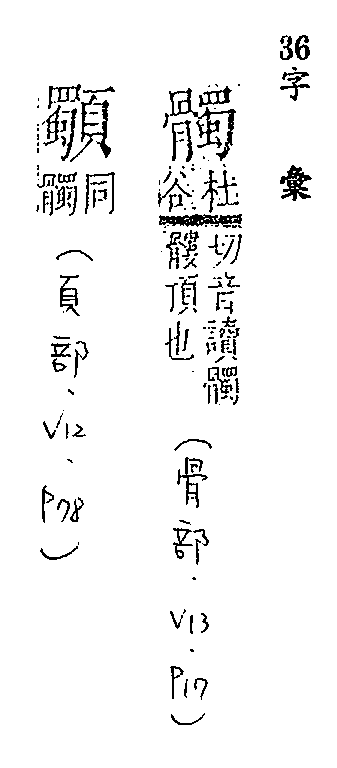 36字彙
髑
杜谷
切音讀髑
髏頂也
(骨部.V13.P17)
同髑
(頁部.V12.P78)